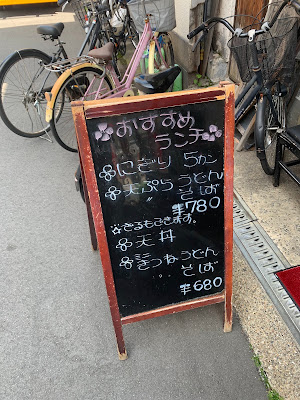 おすすめ
ランチ
にぎり 5カン
天ぷらうどん
〃 そば
¥780
ざるもできます。
天丼
ミニ
きつねうどん
〃 そば
¥680